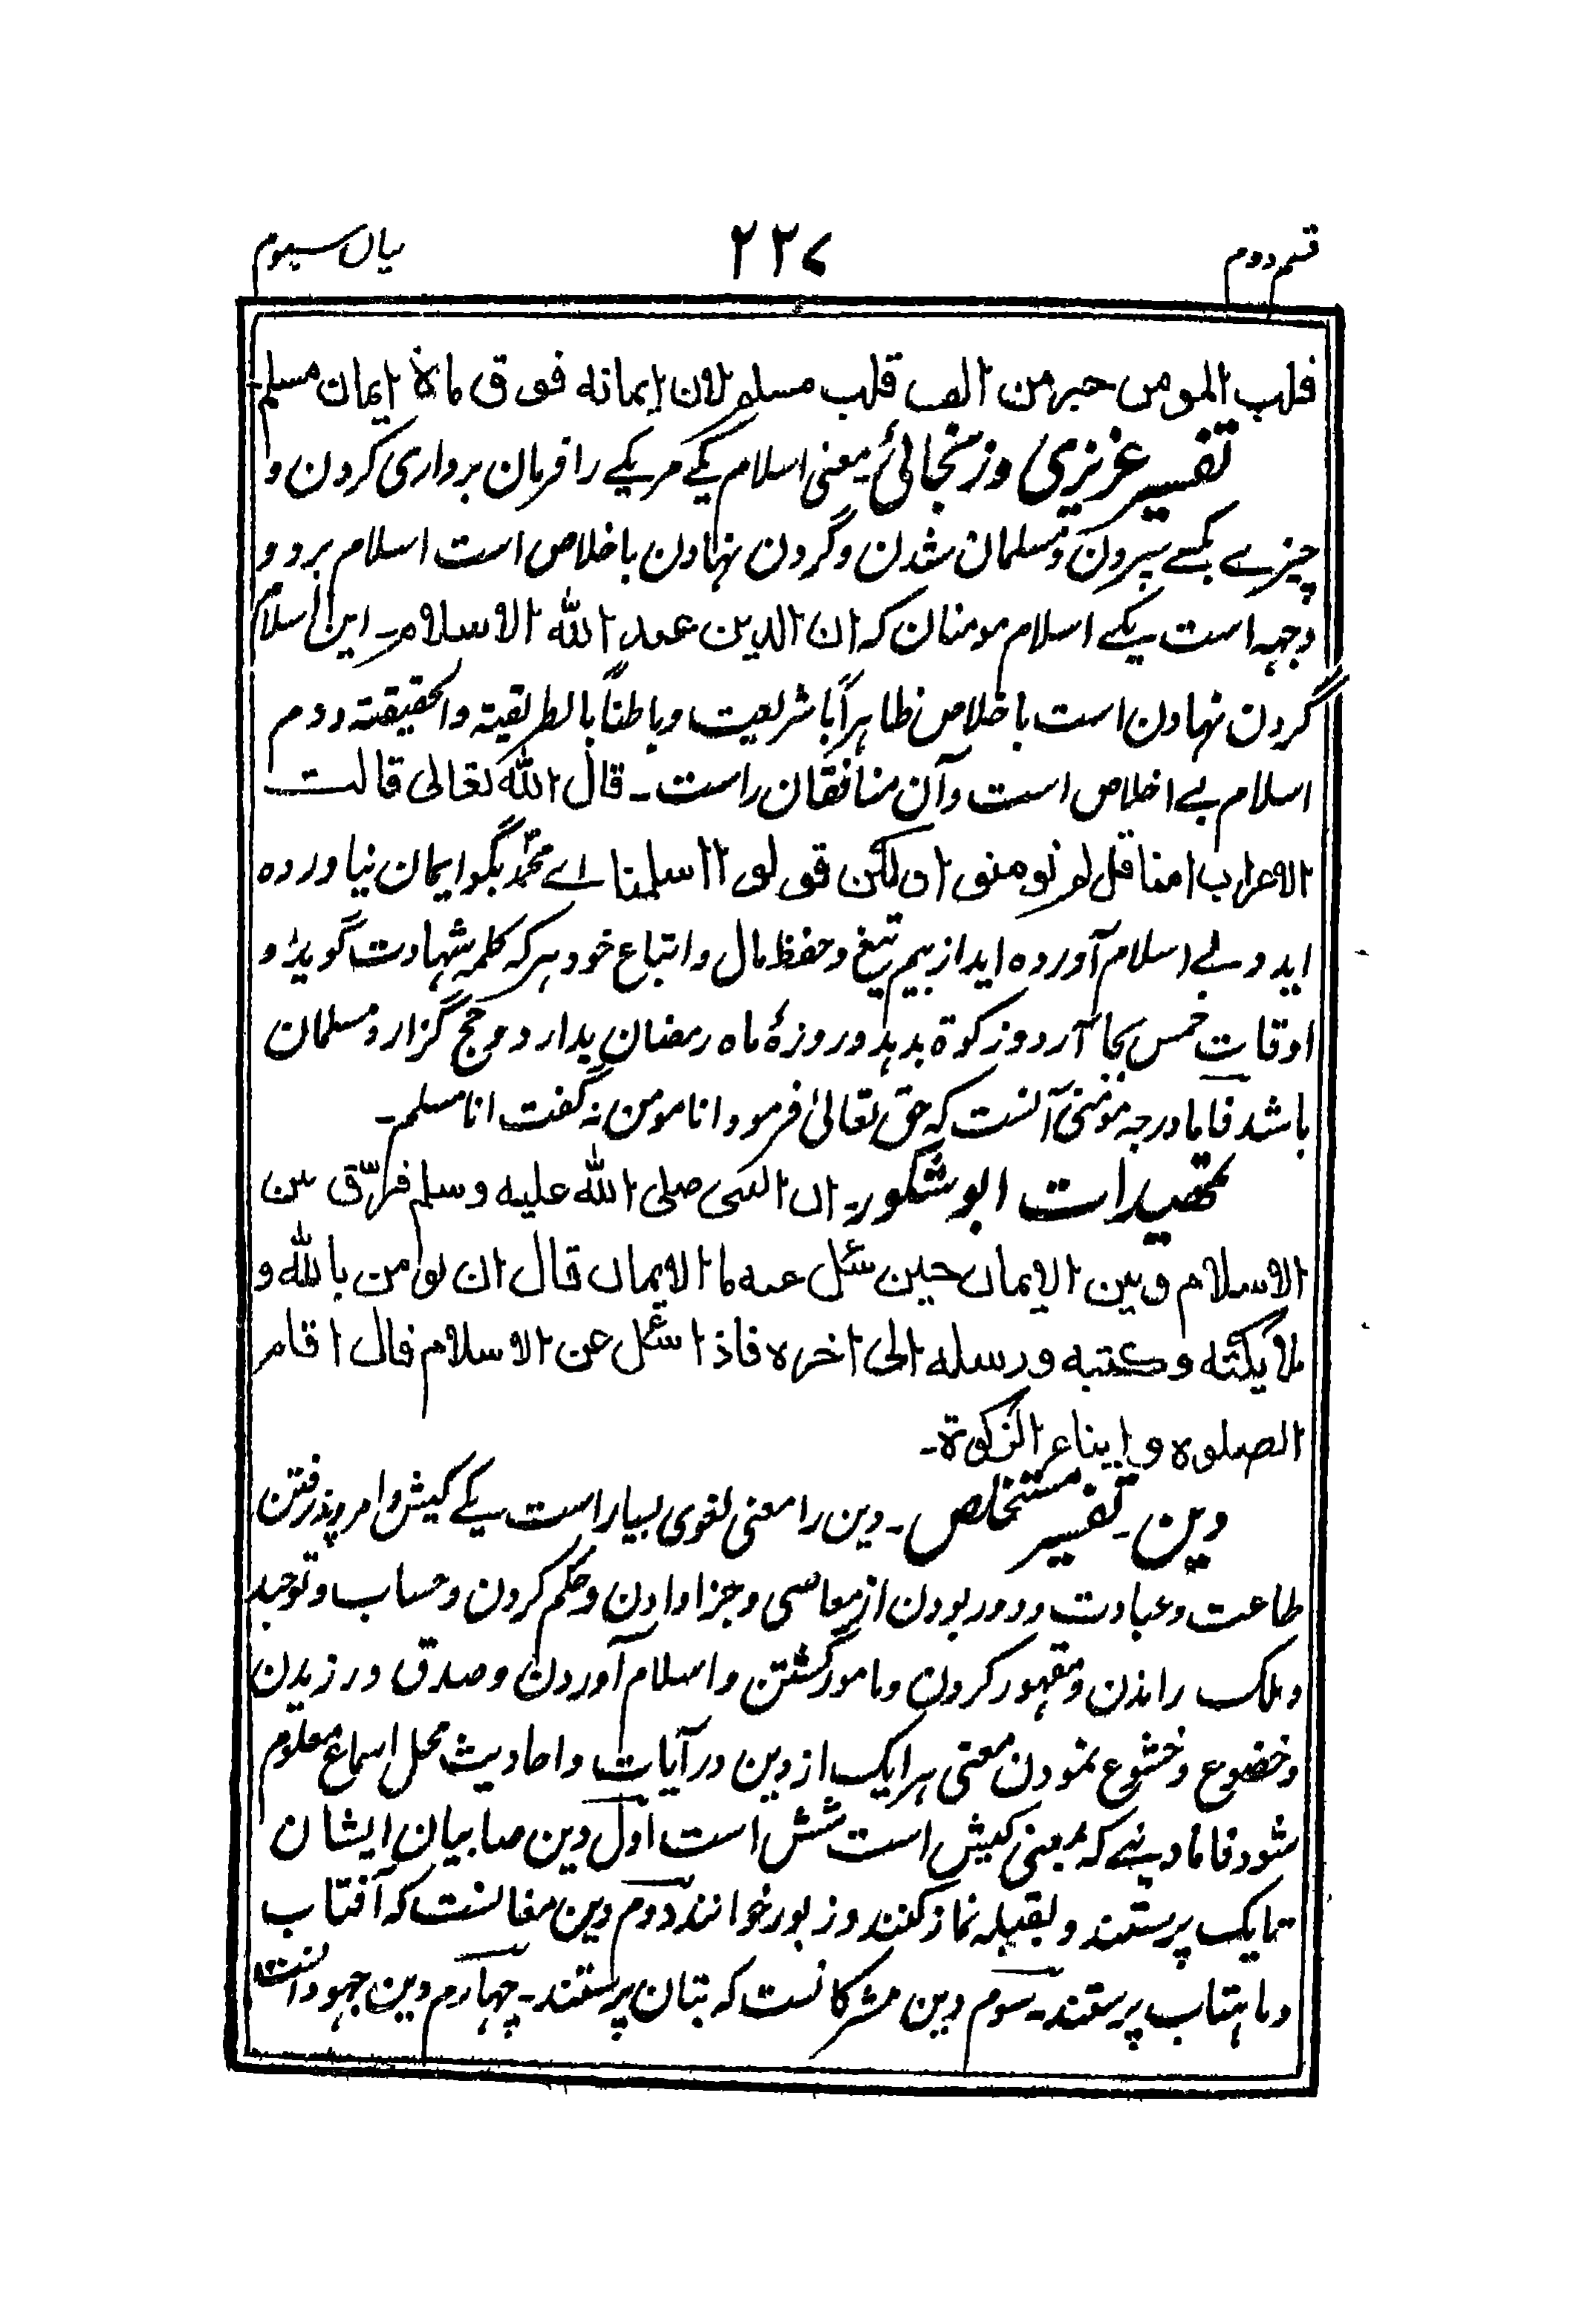 قسم دوم ۲۲۷ بیان سیوم
قلب المومن خیر من الف قلب مسلم لان ایمانه فوق مائة ایمان مسلم
تفسیر عزیزی و زنجائی معنی اسلام یکے مر یکے را فرمان برداری کردن و
چیزے بکسے سپردن و مسلمان شدن و گردن نهادن باخلاص است اسلام بر دو
وجهه است یکے اسلام مومنان که ان الدین عند الله الاسلام۔ این اسلام
گردن نهادن است باخلاص ظاهراً باشریعت و باطناً بالطریقة والحقیقة دوم
اسلام بے اخلاص است و آن منافقان راست۔ قال الله تعالی قالت
الاعراب امنا قل لم تومنوا ولکن قولوا اسلمنا اے محمدؐ بگو ایمان نیاورده
اید ولے اسلام آورده اید از بیم تیغ و حفظ مال و اتباع خود هر که کلمه شهادت گوید و
اوقات خمس بجا آرد و زکوة بدهد و روزهٔ ماه رمضان بدارد و حج گزارد مسلمان
باشد فاما درجه مؤمنی آنست که حق تعالیٰ فرمود انا مومن نه گفت انا مسلم۔
تمهیدات ابو شکور۔ ان النبی صلی الله علیه وسلم فرّق بین
الاسلام و بین الایمان حین سئل عنه ما الایمان قال ان تومن بالله و
ملایکته و کتبه و رسله الی اخره فاذا سئل عن الاسلام قال اقام
الصلوه و ایتاء الزکوة۔
دین۔ تفسیر مستخلص۔ دین را معنی لغوی بسیار است یکے کیش و امر پذیرفتن
طاعت و عبادت و دور بودن از معاصی و جزا دادن و حکم کردن و حساب و توحید
و ملک راندن و مقهور کردن و مامور گشتن و اسلام آوردن و صدق ورزیدن
و خضوع و خشوع نمودن معنی هر ایک از دین در آیات و احادیث محل اسماع معلوم
شود فاما دینے که بمعنی کیش است شش است اول دین صابیان ایشان
پرستند و بقبله نماز کنند و زبور خوانند دوم دین مغانست که آفتاب
و ماهتاب پرستند۔ سوم دین مشرکانست که بتان پرستند۔ چهارم دین جهودانست